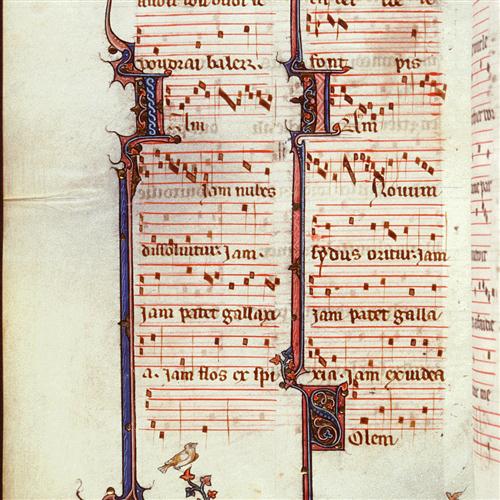 voudrai baler.
IAm
Jam nubes
dissoluitur. Jam.
Jam patet gallaxi
a. Jam flos ex spi
font pis
IAm
Nouum
sydus oritur. Jam
Jam patet galla
xia. Jam ex iudea
SOlem